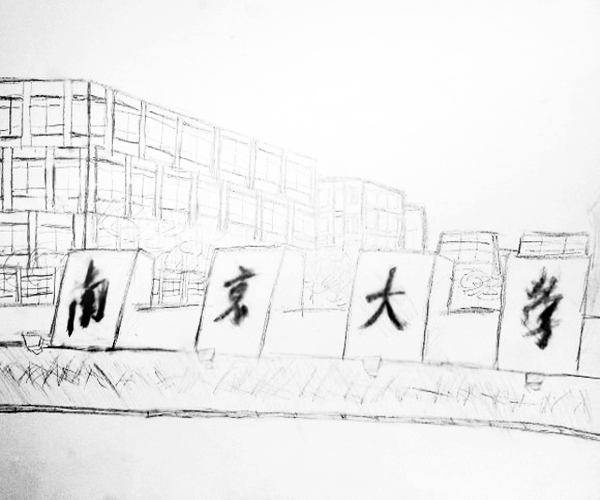 南京大学